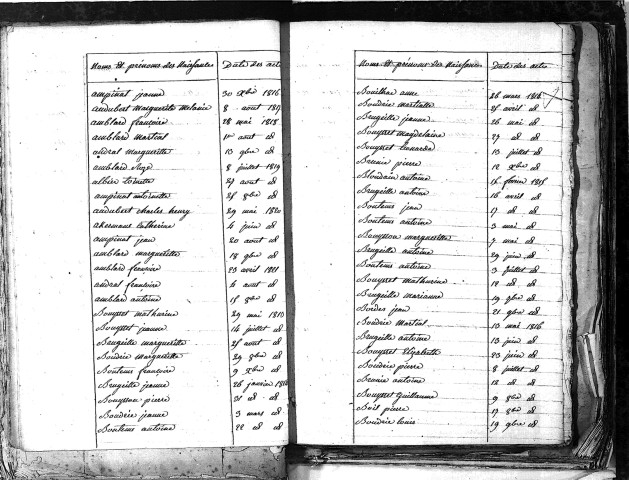 Noms et prénoms des Naissantes Date des acte
ampinat jeanne 30 xbre 1816
audubert marguerite melanie 8 aout
amblard françoise 28 mai 1818
amblard martial aout id
andral marguerite 13 9bre id
amblard 8 juillet 1819
aout id
ampinat antoinette 25 8bre id
audubert charles henry 29 mai 1820
catherine 4 juin id
ampinat jean 20 aout id
amblard marguerite 18 9bre id
amblard françoise 23 avril 1821
andral françoise 4 aout id
amblard antoine 15 8bre id
Bouysset mathurine 29 mai 1810
Bouysset jeanne 14 juillet id
Brugeille marguerite 25 aout id
Boudrie marguerite 29 8bre id
Bonteus françoise 9 xbre id
Brugeille jeanne 26 janvier
Bouysson pierre 31 id id
Boudrie jeanne 3 mars id
Bonteus antoine 22 id id
Noms et prénoms des Naissances Date des actes
anne 26 mars
Boudrie martiale 25 avril id
Brugeille jeanne 26 mai id
Bouysset magdelaine 27 id id
Bouysset leonarde 13 juillet id
Brunie pierre 12 xbre id
Bloudain antoine février
Brugeille antoine 16 avril id
Bonteus jean 17 id id
Bonteus antoine 3 mai id
Bouysson marguerite 7 mai id
Brugeille antoine 29 juin id
Bonteus antoine 3 juillet id
Bouysset mathurine 12 id id
Brugeille marianne 19 9bre id
Bordes jean 21 9bre id
Boudrie martial 10 mai 1816
Brugeille antoine 13 juin id
Bouysset Elizabeth 23 juin id
Boudrie pierre 8 juillet id
Brunie antoine 12 id id
Bouysset guillaume 9 8bre id
Bois pierre 17 8bre id
Boudrie louis 19 9bre id